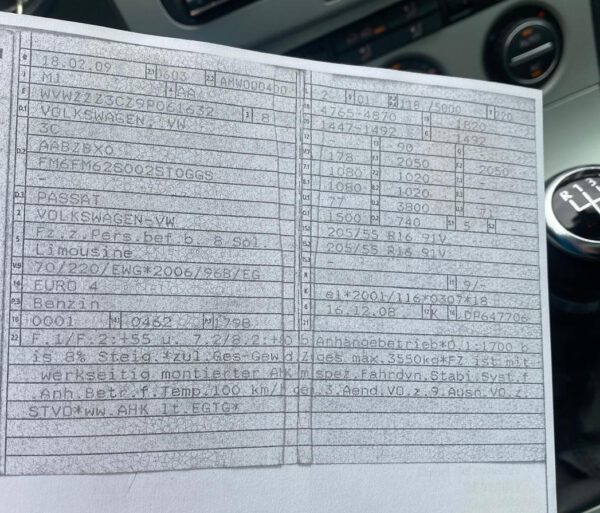 18.02.09 0603 AMW00040
M1 AA
WVWZZZ3CZ9P061632 8
VOLKSWAGEN, VW
3C
AABZBX0
FM6FM62S002STOGGS
-
PASSAT
VOLKSWAGEN-VW
Fz.z.Pers.bef.b. 8 Spl.
Limousine
70/220/EWG*2006/96B/EG
EURO 4
Benzin
0001 0462 1798
2 01 118 /5000 220
4765-4870 1820
1447-1492 1492
90
178 2050 2050
1080 1020 -
1080 1020 -
77 3800 71
1500 740 5 -
205/55 R16 91V
205/55 R16 91V
-
9/-
e1*2001/116*0307*18
16.12.08 K LDP647706
F.1/F.2:+55 u. 7.2/8.2:+40 b Anhängebetrieb*O.1:1700 b
is 8% Steig.*zul.Ges-Gew d.Zuges max.3550kg*FZ ist mit
werkseitig montierter AHK m spez.Fahrdyn.Stabi.Syst.f
Anh.Betr.f.Temp.100 km/h gem.3.Aend.VO.z.9.Ausn.VO.z.
STVO*ww.AHK lt.EGTG*
R 1 3